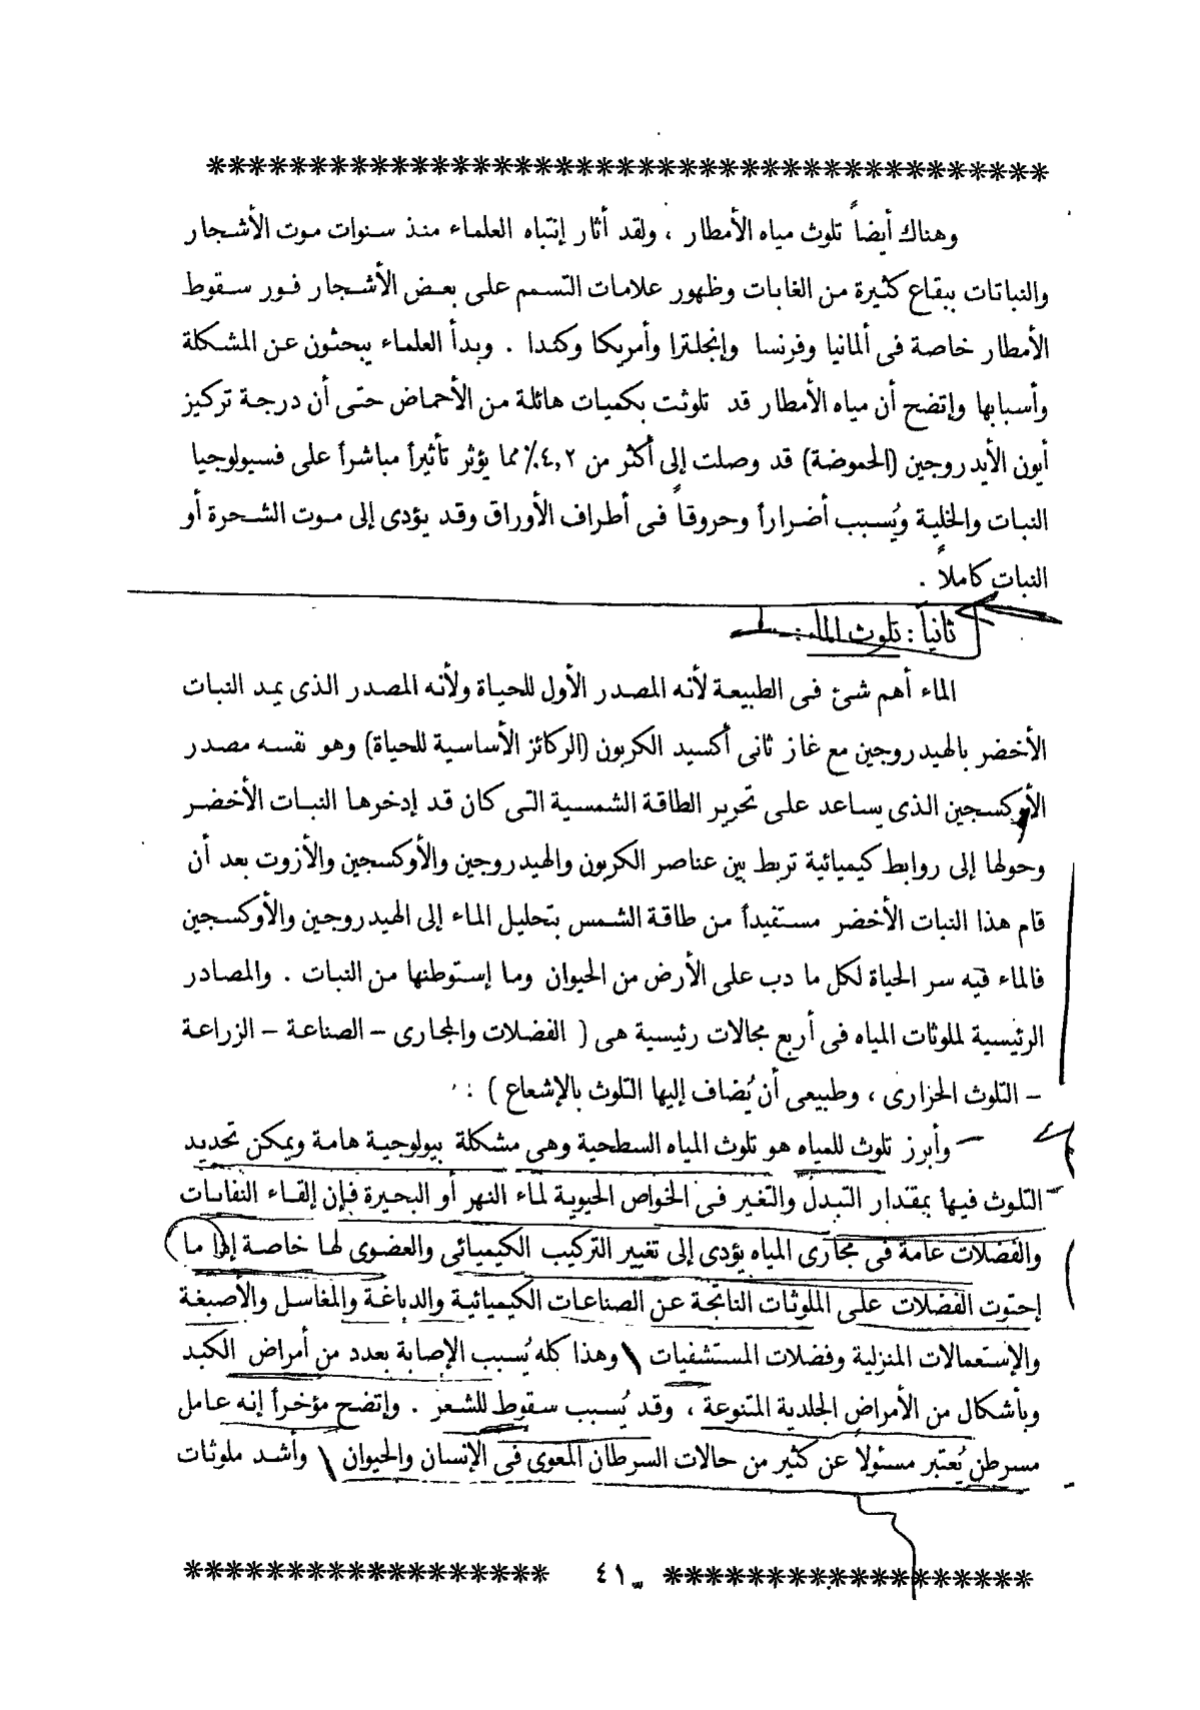 وهناك أيضاً تلوث مياه الأمطار ، ولقد أثار إنتباه العلماء منذ سنوات موت الأشجار
والنباتات ببقاع كثيرة من الغابات وظهور علامات التسمم على بعض الأشجار فور سقوط
الأمطار خاصة فى ألمانيا وفرنسا وإنجلترا وأمريكا وكندا . وبدأ العلماء يبحثون عن المشكلة
وأسبابها وإتضح أن مياه الأمطار قد تلوثت بكميات هائلة من الأحماض حتى أن درجة تركيز
أيون الأيدروجين (الحموضة) قد وصلت إلى أكثر من ٤,٢٪ مما يؤثر تأثيراً مباشراً على فسيولوجيا
النبات والخلية ويُسبب أضراراً وحروقاً فى أطراف الأوراق وقد يؤدى إلى موت الشحرة أو
النبات كاملاً .
ثانياً : تلوث الماء :
الماء أهم شئ فى الطبيعة لأنه المصدر الأول للحياة ولأنه المصدر الذى يمد النبات
الأخضر بالهيدروجين مع غاز ثانى أكسيد الكربون (الركائز الأساسية للحياة) وهو نفسه مصدر
الأوكسجين الذى يساعد على تحرير الطاقة الشمسية التى كان قد إدخرها النبات الأخضر
وحولها إلى روابط كيميائية تربط بين عناصر الكربون والهيدروجين والأوكسجين والأزوت بعد أن
قام هذا النبات الأخضر مستفيداً من طاقة الشمس بتحليل الماء إلى الهيدروجين والأوكسجين
فالماء فيه سر الحياة لكل ما دب على الأرض من الحيوان وما إستوطنها من النبات . والمصادر
الرئيسية لملوثات المياه فى أربع مجالات رئيسية هى ( الفضلات والمجارى – الصناعة – الزراعة
– التلوث الحرارى ، وطبيعى أن يُضاف إليها التلوث بالإشعاع ) :
وأبرز تلوث للمياه هو تلوث المياه السطحية وهى مشكلة بيولوجية هامة ويمكن تحديد
التلوث فيها بمقدار التبدل والتغير فى الخواص الحيوية لماء النهر أو البحيرة فإن إلقاء النفايات
والفضلات عامة فى مجارى المياه يؤدى إلى تغيير التركيب الكيميائى والعضوى لها خاصة إذا ما
إحتوت الفضلات على الملوثات الناتجة عن الصناعات الكيميائية والدباغة والمغاسل والأصبغة
والإستعمالات المنزلية وفضلات المستشفيات وهذا كله يُسبب الإصابة بعدد من أمراض الكبد
وبأشكال من الأمراض الجلدية المتنوعة ، وقد يُسبب سقوط للشعر . وإتضح مؤخراً إنه عامل
مسرطن يُعتبر مسئولاً عن كثير من حالات السرطان المعوى فى الإنسان والحيوان وأشد ملوثات
٤١